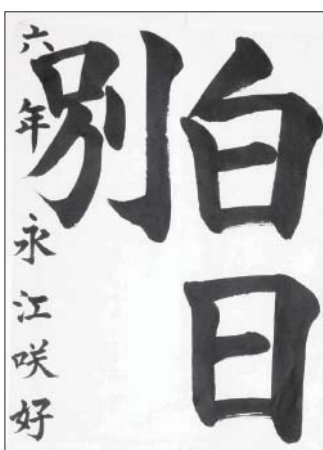 白日
別
六年 永江咲好